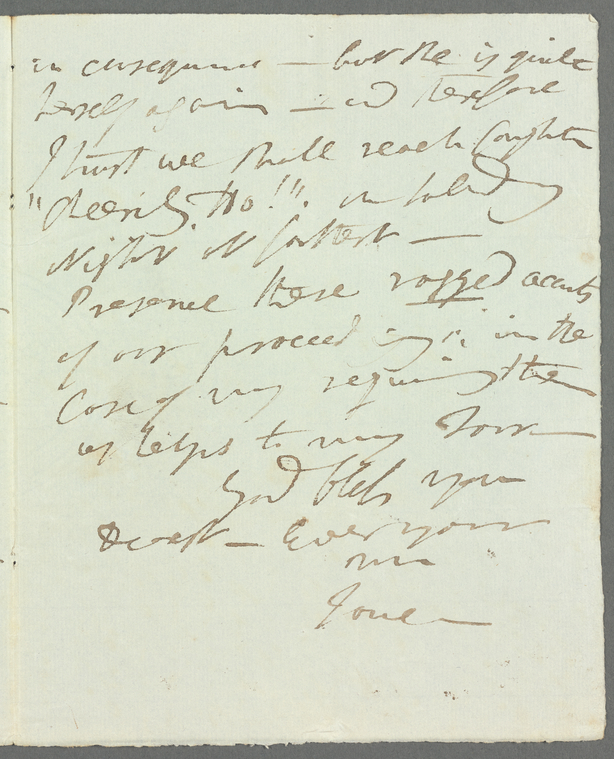 in consequence — but she is quite
herself again — and therefore
I trust we shall reach
"Cheerily, Ho!". on
night at farthest —
Preserve these ragged accounts
of our proceedings in the
Case of my requiring them
as helps to my Tour
God bless you
Dearest — Ever your
own
Jane